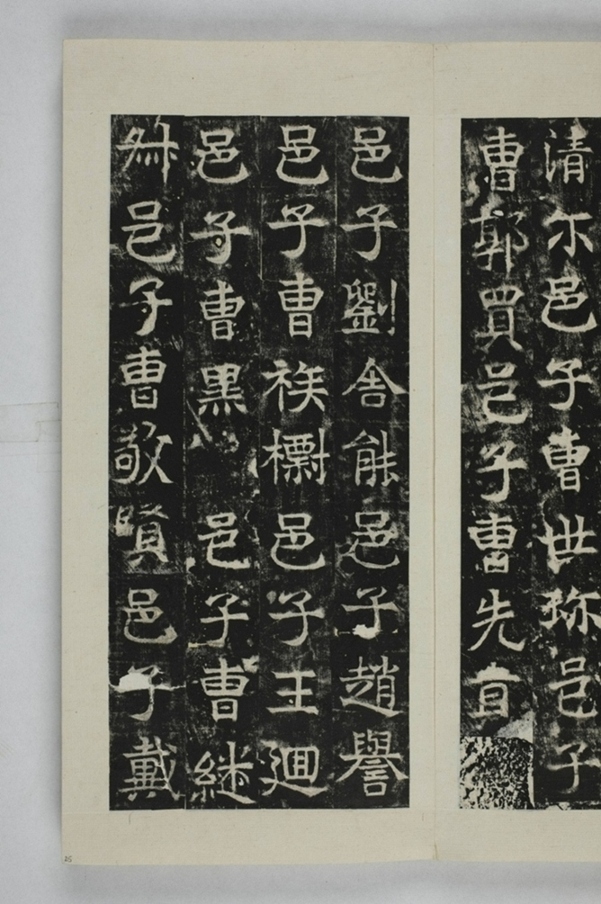 清尒邑子曹世珎邑子
曹郭買邑子曹先宜
邑子劉舍能邑子趙譽
邑子曹族欝邑子王迴
邑子曹黑邑子曹継
叔邑子曹敬賢邑子戴